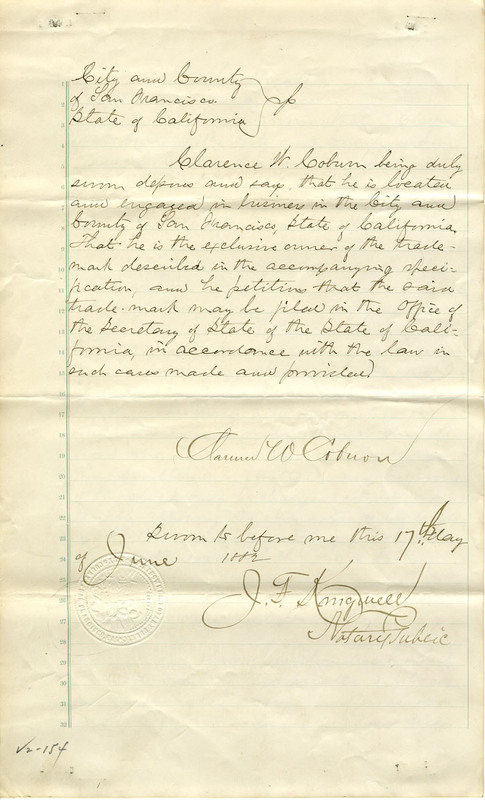 City and County
of San Francisco
State of California
Clarence W. Coburn being duly
sworn deposes and says, that he is located
and engaged in business in the City and
County of San Francisco, State of California,
That he is the exclusive owner of the trade-
mark described in the accompanying speci-
fication, and he petitions that the said
trade-mark may be filed in the Office of
the Secretary of State of the State of Cali-
fornia, in accordance with the law in
such cases made and provided
Clarence W Coburn
Sworn to before me this 17th day
of June 1882
J. F. Kingwell
Notary Public
1
2
3
4
5
6
7
8
9
10
11
12
13
14
15
16
17
18
19
20
21
22
23
24
25
26
27
28
29
30
31
32
V2-154